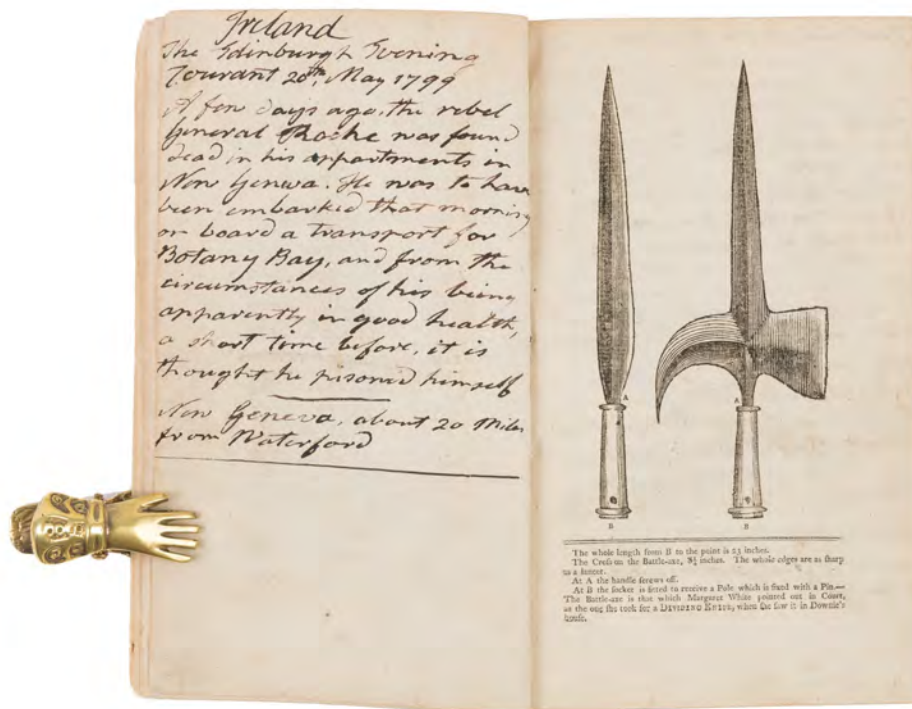 Ireland
The Edinburgh Evening
Courant 20th, May 1799
A few days ago, the rebel
General Roche was found
dead in his appartments in
New Geneva. He was to have
been embarked that morning
on board a transport for
Botany Bay, and from the
circumstances of his being
apparently in good health,
a short time before, it is
thought he pisoned himself
New Geneva, about 20 Miles
from Waterford
A
A
B
B
The whole length from B to the point is 23 inches.
The Cress on the Battle-axe, 8½ inches. The whole edges are as sharp
as a lancet.
At A the handle screws off.
At B the socket is fitted to receive a Pole which is fixed with a Pin—
The Battle-axe is that which Margaret White pointed out in Court,
as the one she took for a DIVIDING KNIFE, when she saw it in Downie's
house.